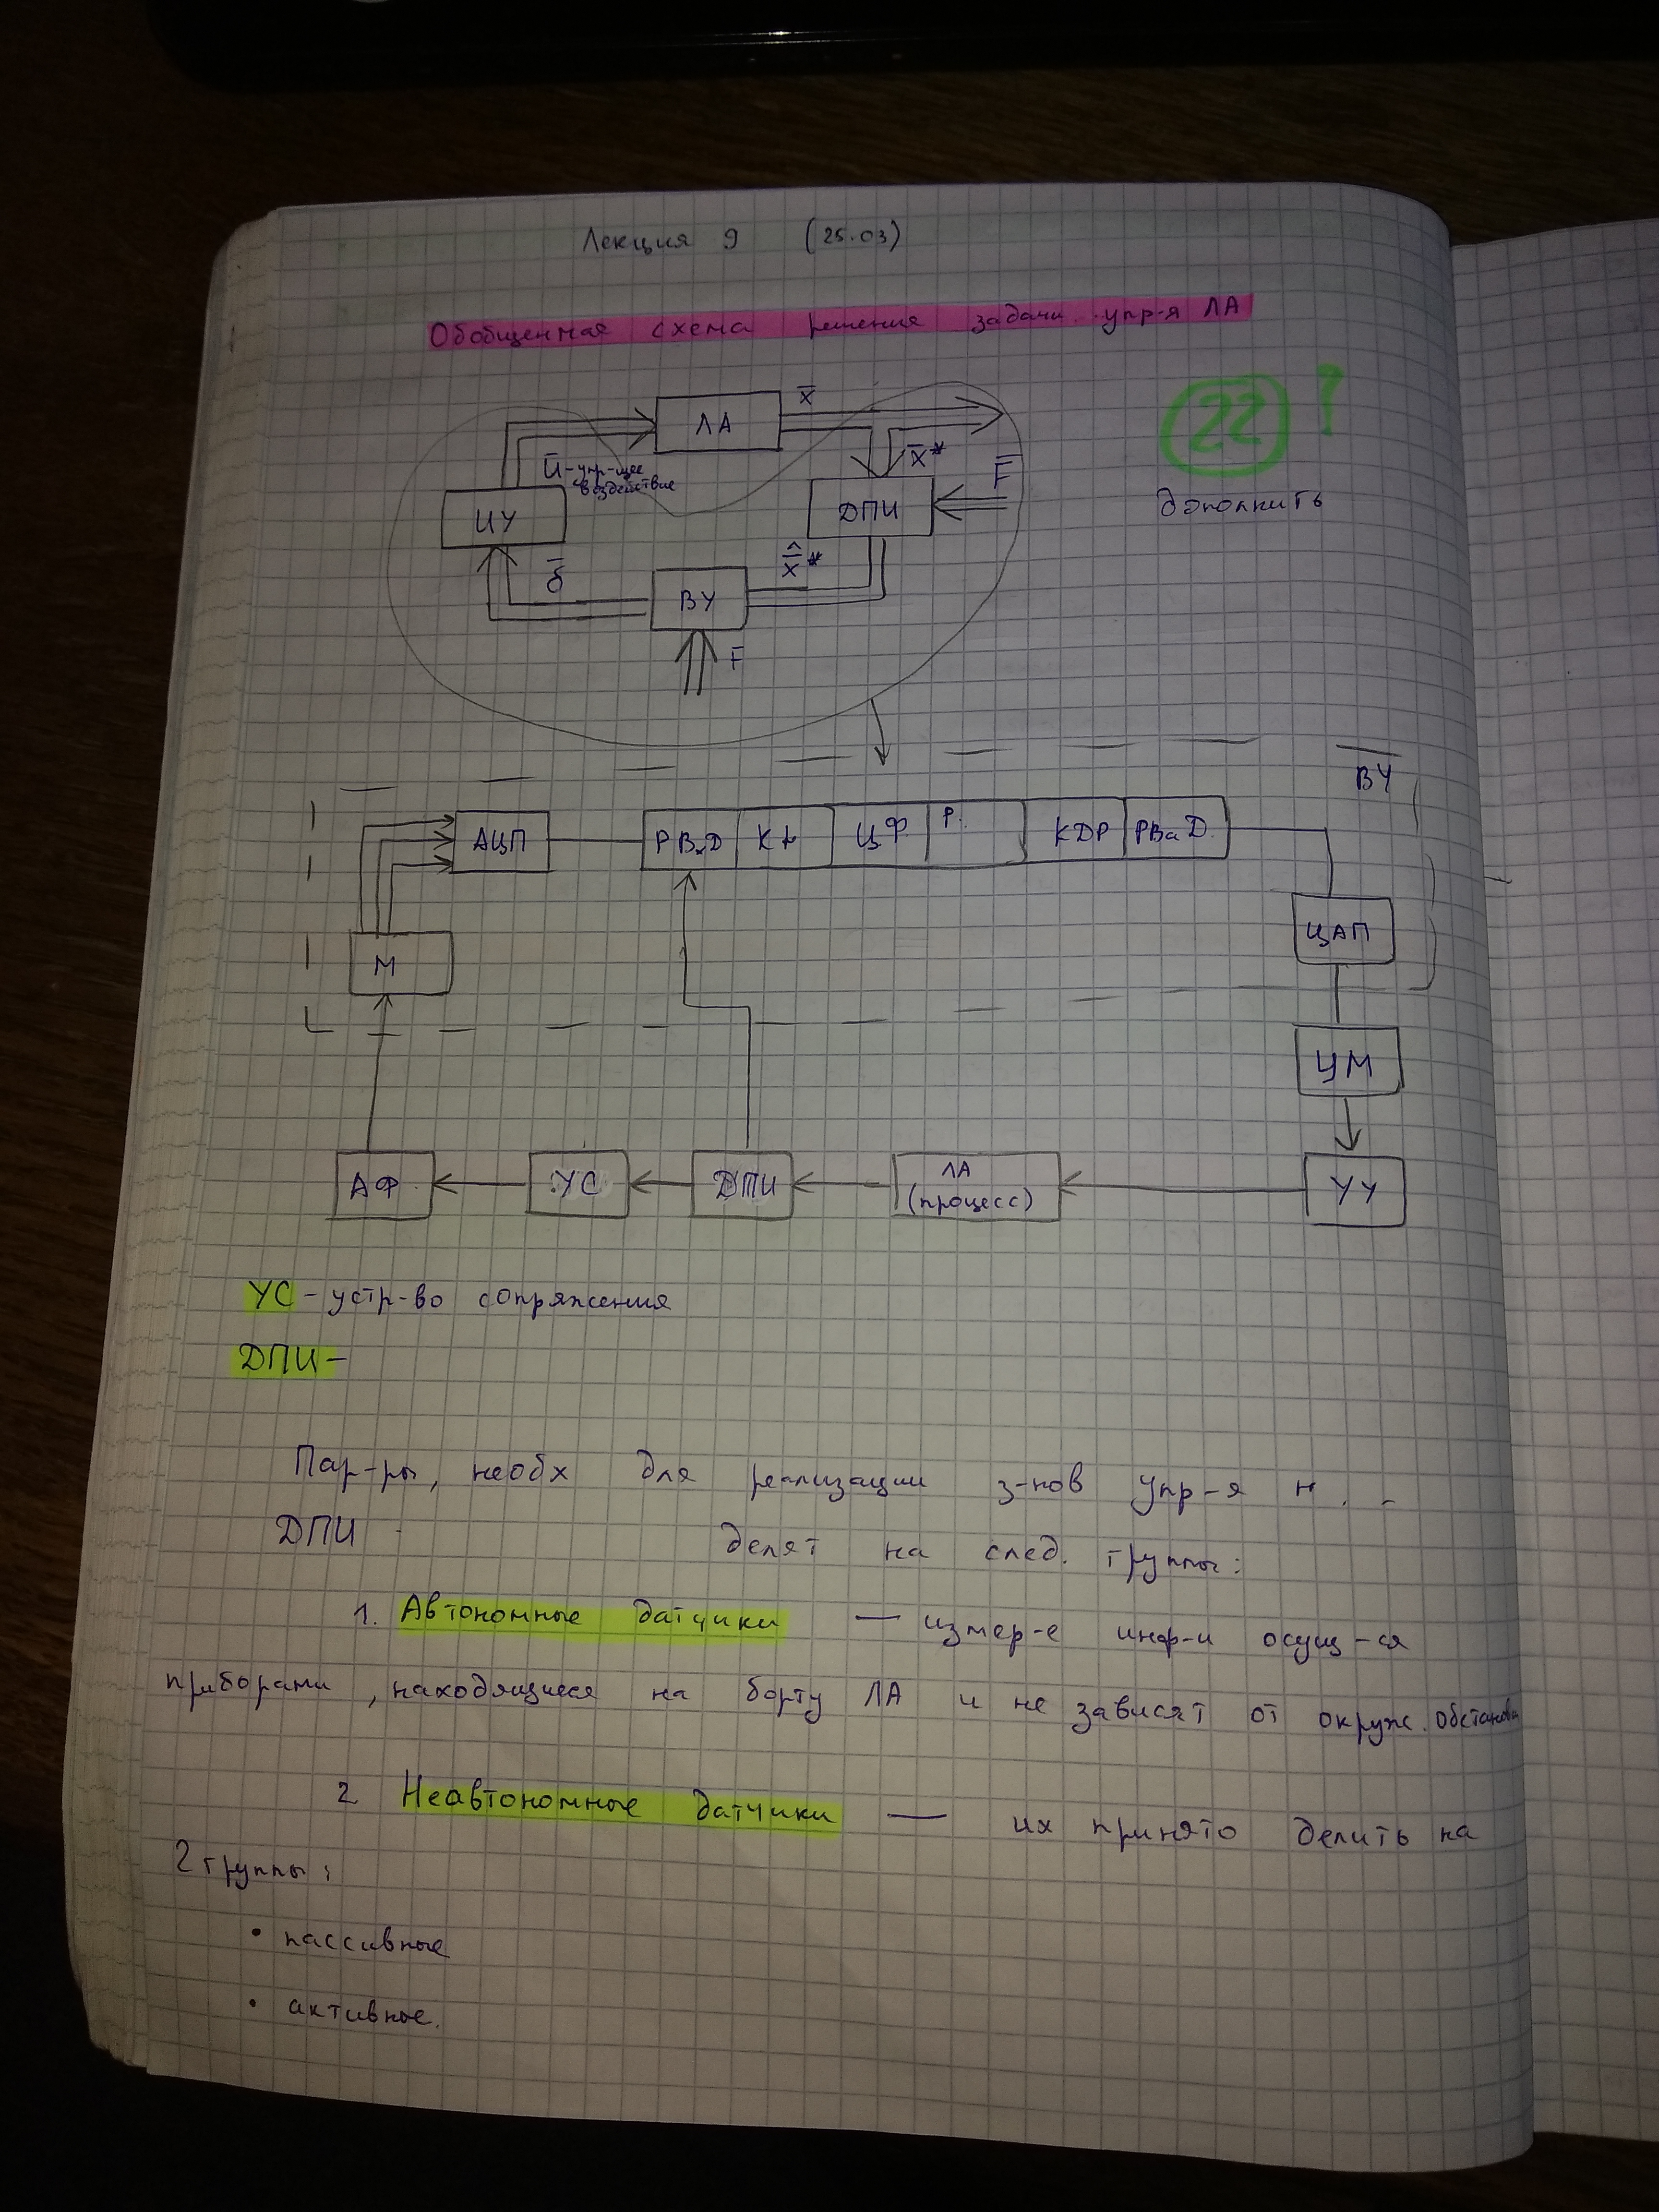 Лекция 9 (25.03)
Обобщенная схема решения задачи упр-я ЛА
22 !
дополнить
ЛА
x̄
x̄*
F̄
ū - упр-щее
воздействие
ИУ
ДПИ
δ̄
x̂̄*
ВУ
F̄
ВУ
АЦП
РВхД
ЦФ
Р.
КДР
ЦАП
М
ЦМ
АФ
УС
ДПИ
ЛА
(процесс)
УУ
УС - устр-во сопряжения
ДПИ -
Пар-ры, необх для реализации з-нов упр-я н. -
ДПИ делят на след. группы:
1. Автономные датчики — измер-е инф-и осущ-ся
приборами, находящиеся на борту ЛА и не зависят от окруж. обстановки
2 Неавтономные датчики — их принято делить на
2 группы:
• пассивные
• активные.